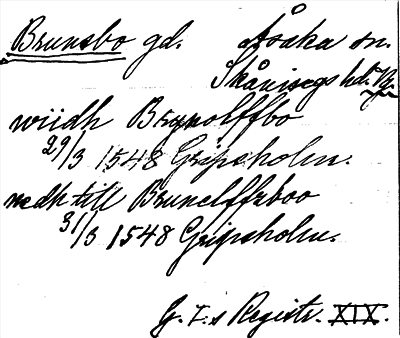 Brunsbo gd. Åsåka sn.
Skånings hd. Vg.
wiidh Brynolffbo
29/3 1548 Gripsholm.
nedh till Brunolffzboo
31/3 1548 Gripsholm.
G. I.s Registr. XIX.